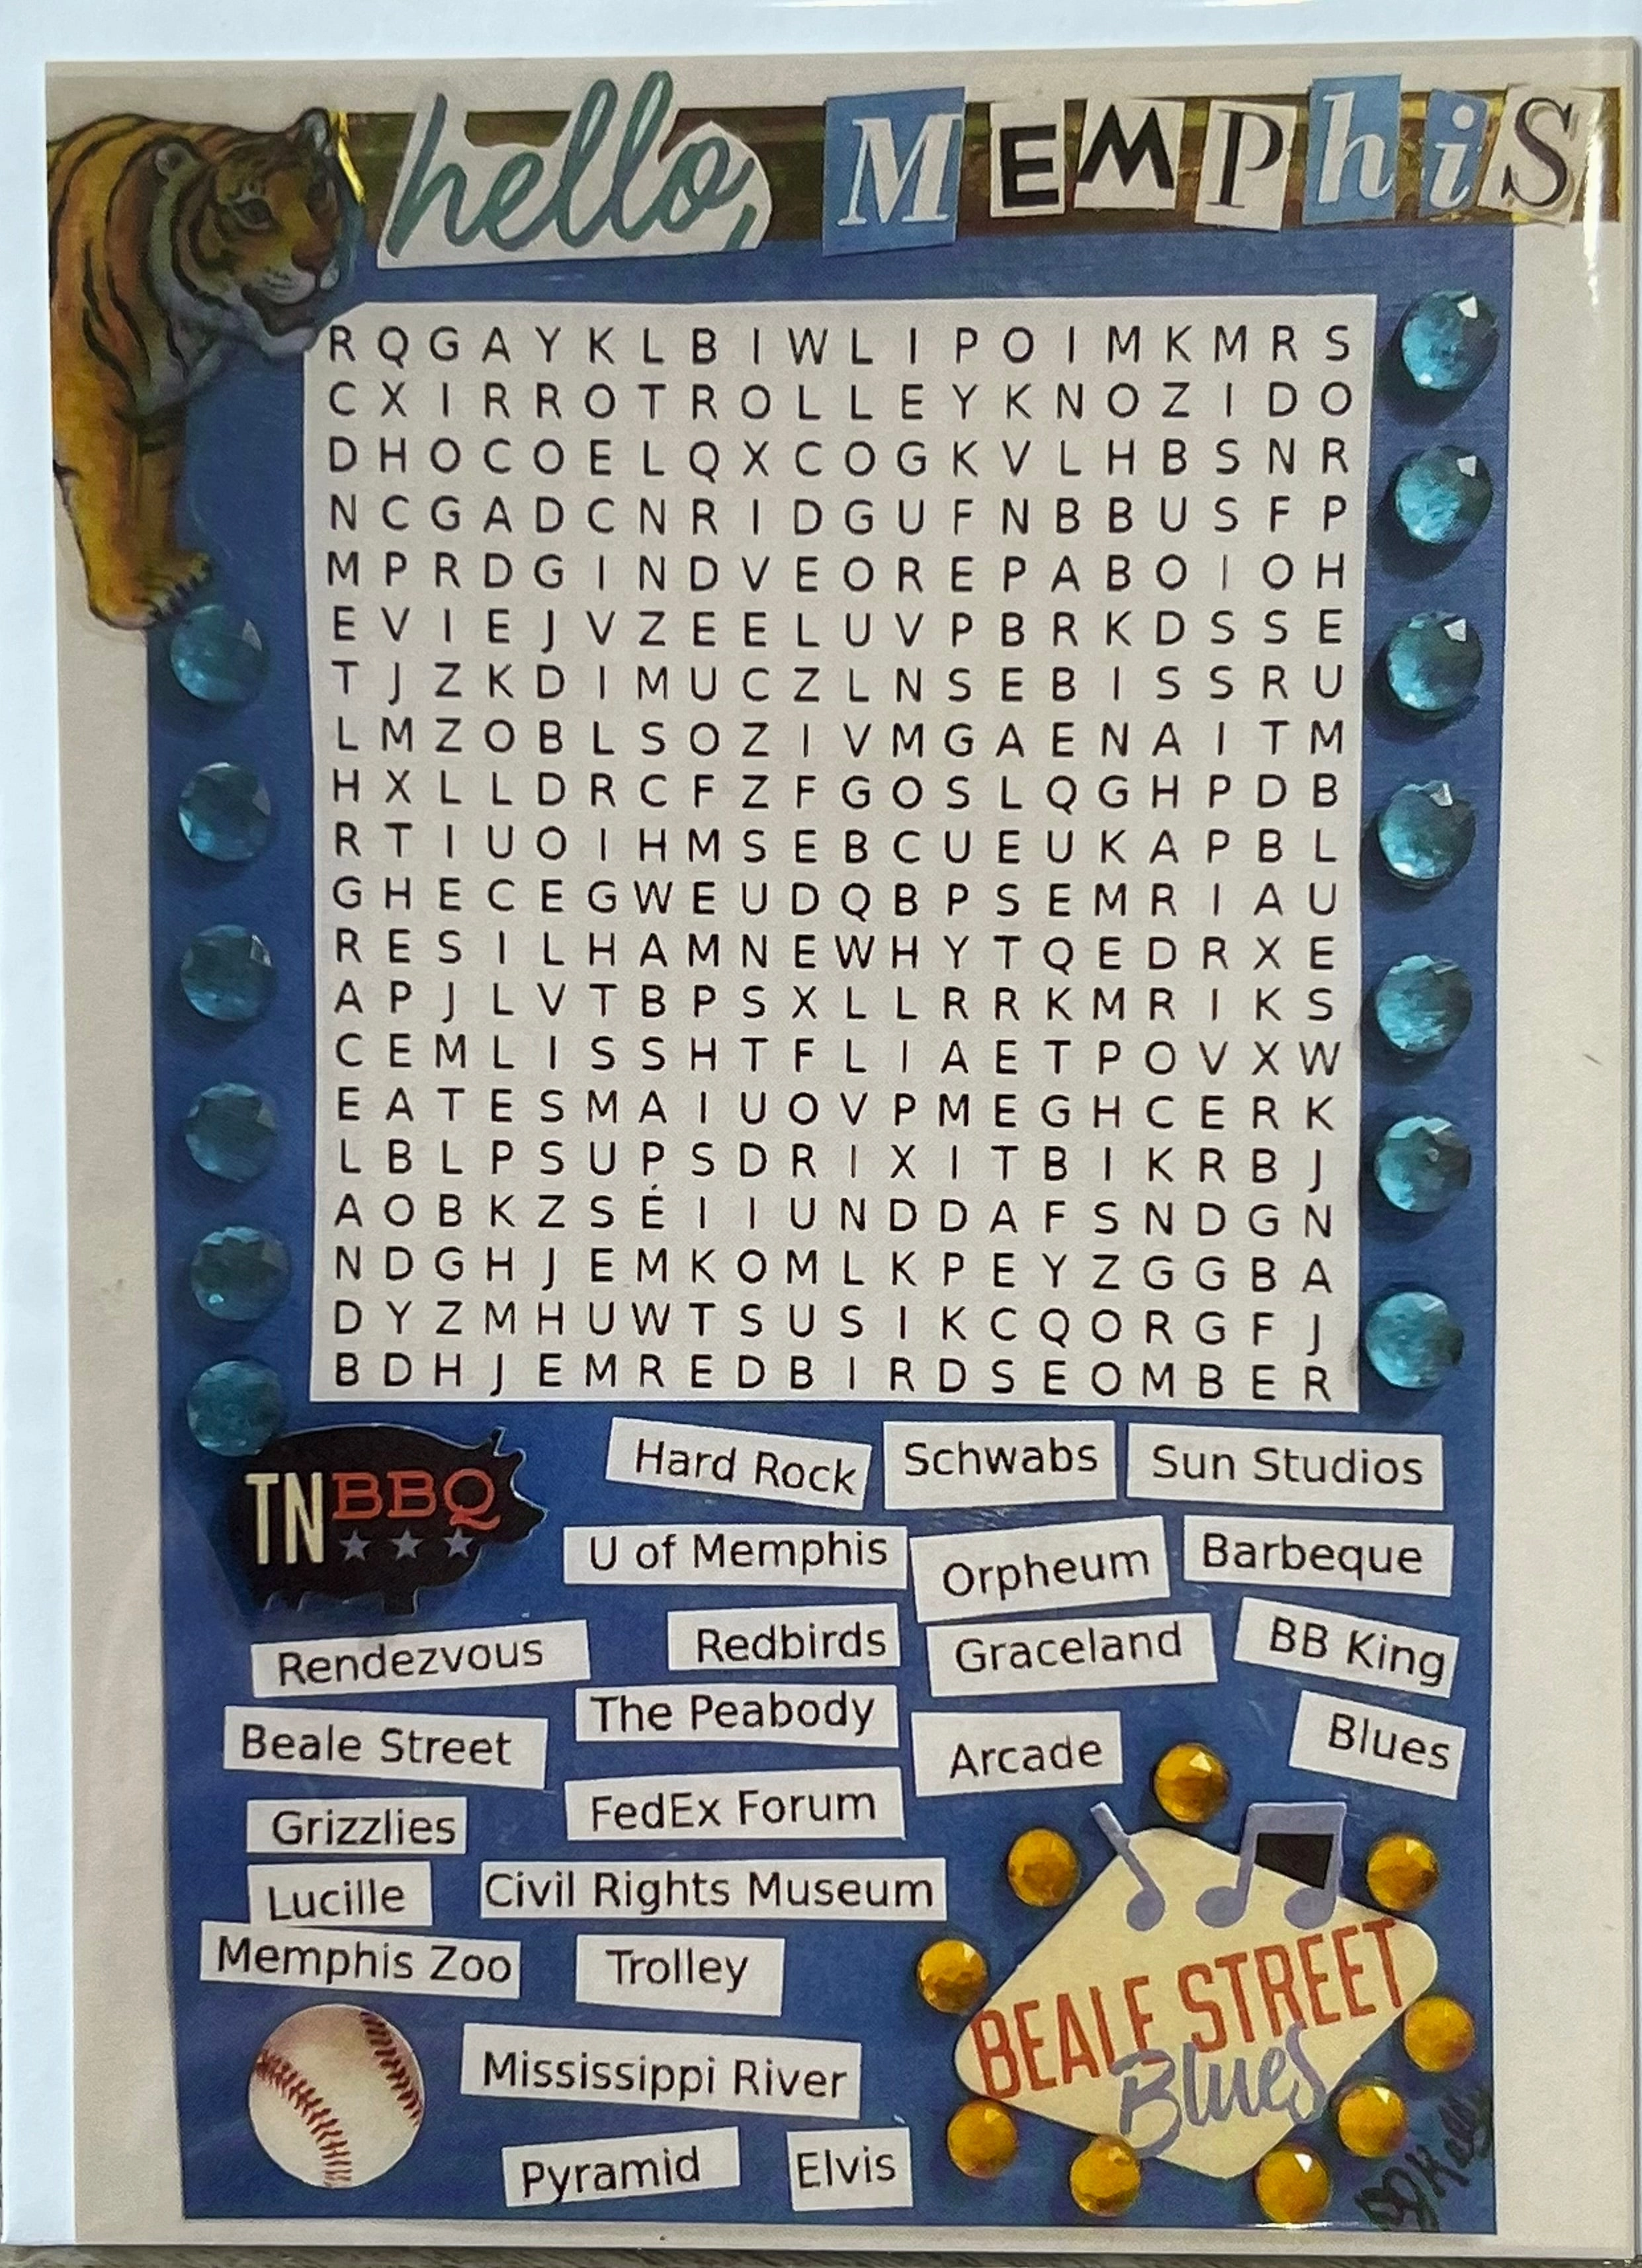 hello, MEMPhiS
R Q G A Y K L B I W L I P O I M K M R S
C X I R R O T R O L L E Y K N O Z I D O
D H O C O E L Q X C O G K V L H B S N R
N C G A D C N R I D G U F N B B U S F P
M P R D G I N D V E O R E P A B O I O H
E V I E J V Z E E L U V P B R K D S S E
T J Z K D I M U C Z L N S E B I S S R U
L M Z O B L S O Z I V M G A E N A I T M
H X L L D R C F Z F G O S L Q G H P D B
R T I U O I H M S E B C U E U K A P B L
G H E C E G W E U D Q B P S E M R I A U
R E S I L H A M N E W H Y T Q E D R X E
A P J L V T B P S X L L R R K M R I K S
C E M L I S S H T F L I A E T P O V X W
E A T E S M A I U O V P M E G H C E R K
L B L P S U P S D R I X I T B I K R B J
A O B K Z S É I I U N D D A F S N D G N
N D G H J E M K O M L K P E Y Z G G B A
D Y Z M H U W T S U S I K C Q O R G F J
B D H J E M R E D B I R D S E O M B E R
TN BBQ
Hard Rock
Schwabs
Sun Studios
U of Memphis
Orpheum
Barbeque
Rendezvous
Redbirds
Graceland
BB King
Beale Street
The Peabody
Arcade
Blues
Grizzlies
FedEx Forum
Lucille
Civil Rights Museum
Memphis Zoo
Trolley
Mississippi River
Pyramid
Elvis
BEALE STREET
Blues